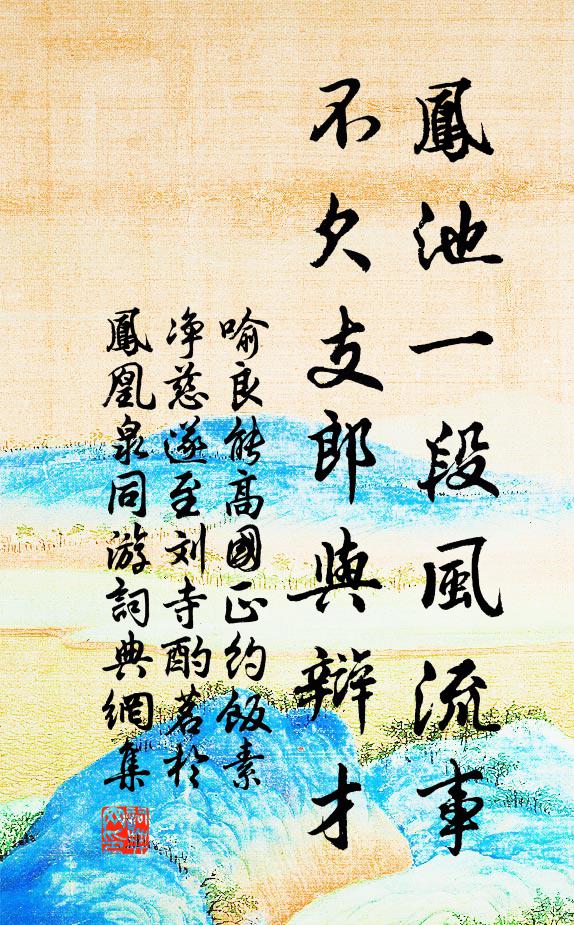 鳳池一段風流事
不欠支郎與辯才
喻良能高國正約飯素
净慈遂至刘寺酌茗於
鳳凰泉同游詞典網集